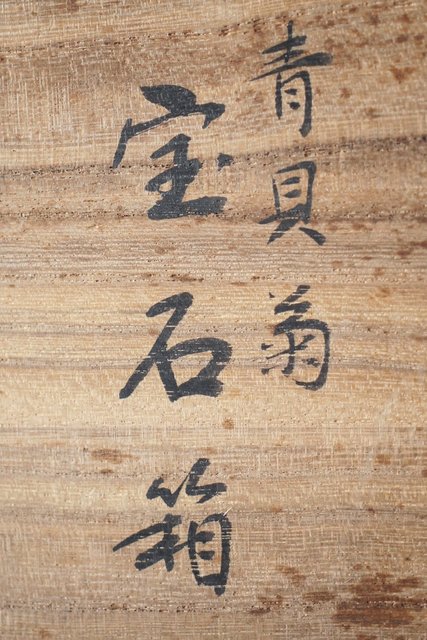 青貝菊
宝石箱